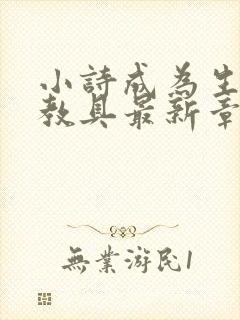 小詩成為生
教具最新章
無業游民1